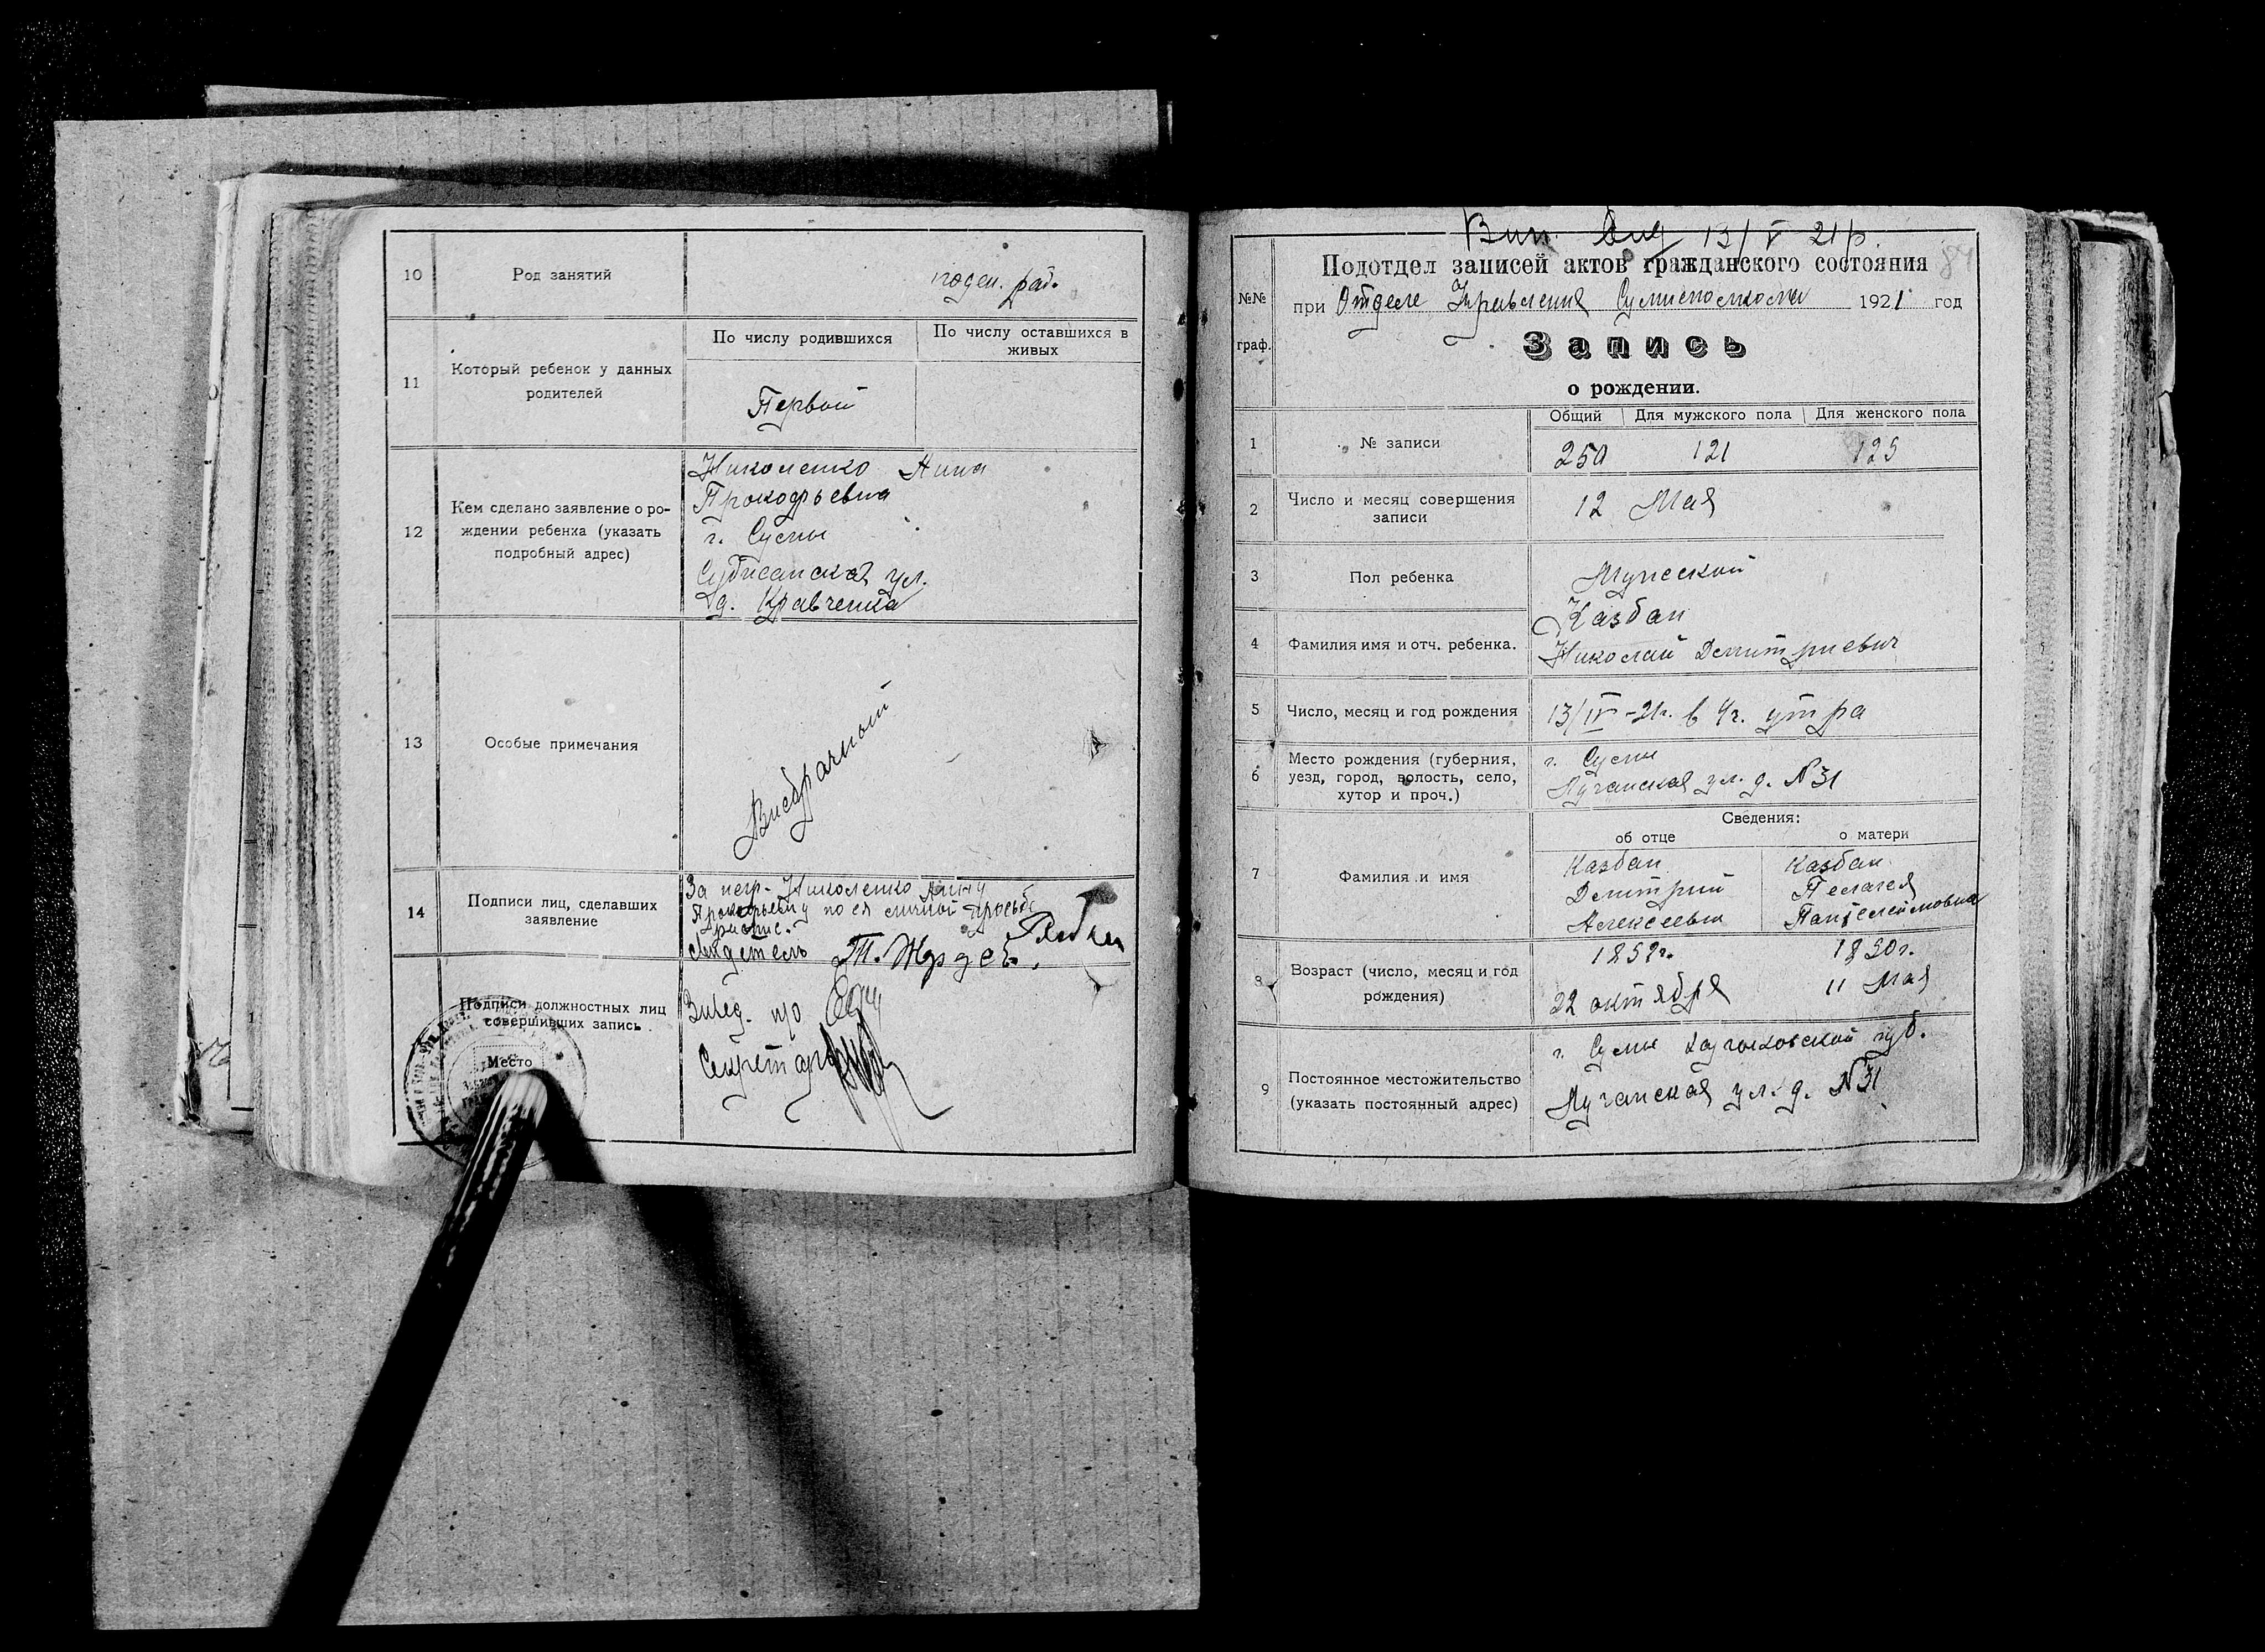 10
Род занятий
поден. раб.
11
Который ребенок у данных
родителей
По числу родившихся
По числу оставшихся в
живых
Первый
12
Кем сделано заявление о ро-
ждении ребенка (указать
подробный адрес)
Николенко Анна
Прокофьевна
г. Сумы
ул.
д. Кравченка
13
Особые примечания
Внебрачный
14
Подписи лиц, сделавших
заявление
За негр. Николенко Анну
Прокофьевну по ея личной просьбе
распис.
Свидетель
Подписи должностных лиц
совершивших запись
Место
Завед. п/о
Секретарь
Вип. 13/V 21р.
Подотдел записей актов гражданского состояния
84
№№
граф.
при Отделе Управления Сумисполкома 1921 год
Запись
о рождении.
Общий
Для мужского пола
Для женского пола
1
№ записи
250
121
129
2
Число и месяц совершения
записи
12 Мая
3
Пол ребенка
Мужеский
4
Фамилия имя и отч. ребенка.
Казбан
Николай Дмитриевич
5
Число, месяц и год рождения
13/IV-21г. в 4ч. утра
6
Место рождения (губерния,
уезд, город, волость, село,
хутор и проч.)
г. Сумы
Лучанская ул. д. №31
7
Фамилия и имя
Сведения:
об отце
о матери
Казбан
Дмитрий
Алексеевич
Казбан
Пелагея
Пантелеймовна
8
Возраст (число, месяц и год
рождения)
22 октября
11 Мая
9
Постоянное местожительство
(указать постоянный адрес)
г. Сумы Харьковской губ.
Лучанская ул. д. №31